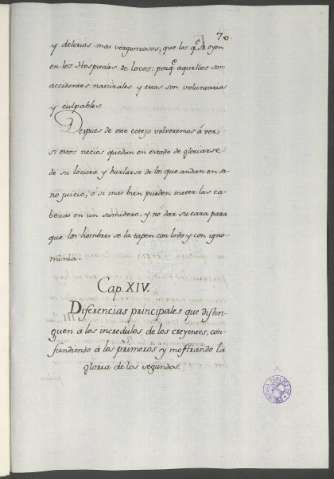 70
y delirios mas vergonzosos, que los q.e se oyen
en los Hospitales de locos: porq.e aquellos son
accidentes naturales y estos son voluntarios
y culpables
Despues de este cotejo volveremos á ver
si estos necios quedan en estado de gloriarse
de su locura y burlarse de los que andan en sa-
no juicio, ó si mas bien pueden meter las ca-
bezas en un sumidero, y no dar su cara para
que los hombres se la tapen con lodo y con igno-
minia.
Cap. XIV.
Diferencias principales que distin-
guen a los incredulos de los creyentes, con-
fundiendo á los primeros y mostrando la
gloria de los segundos